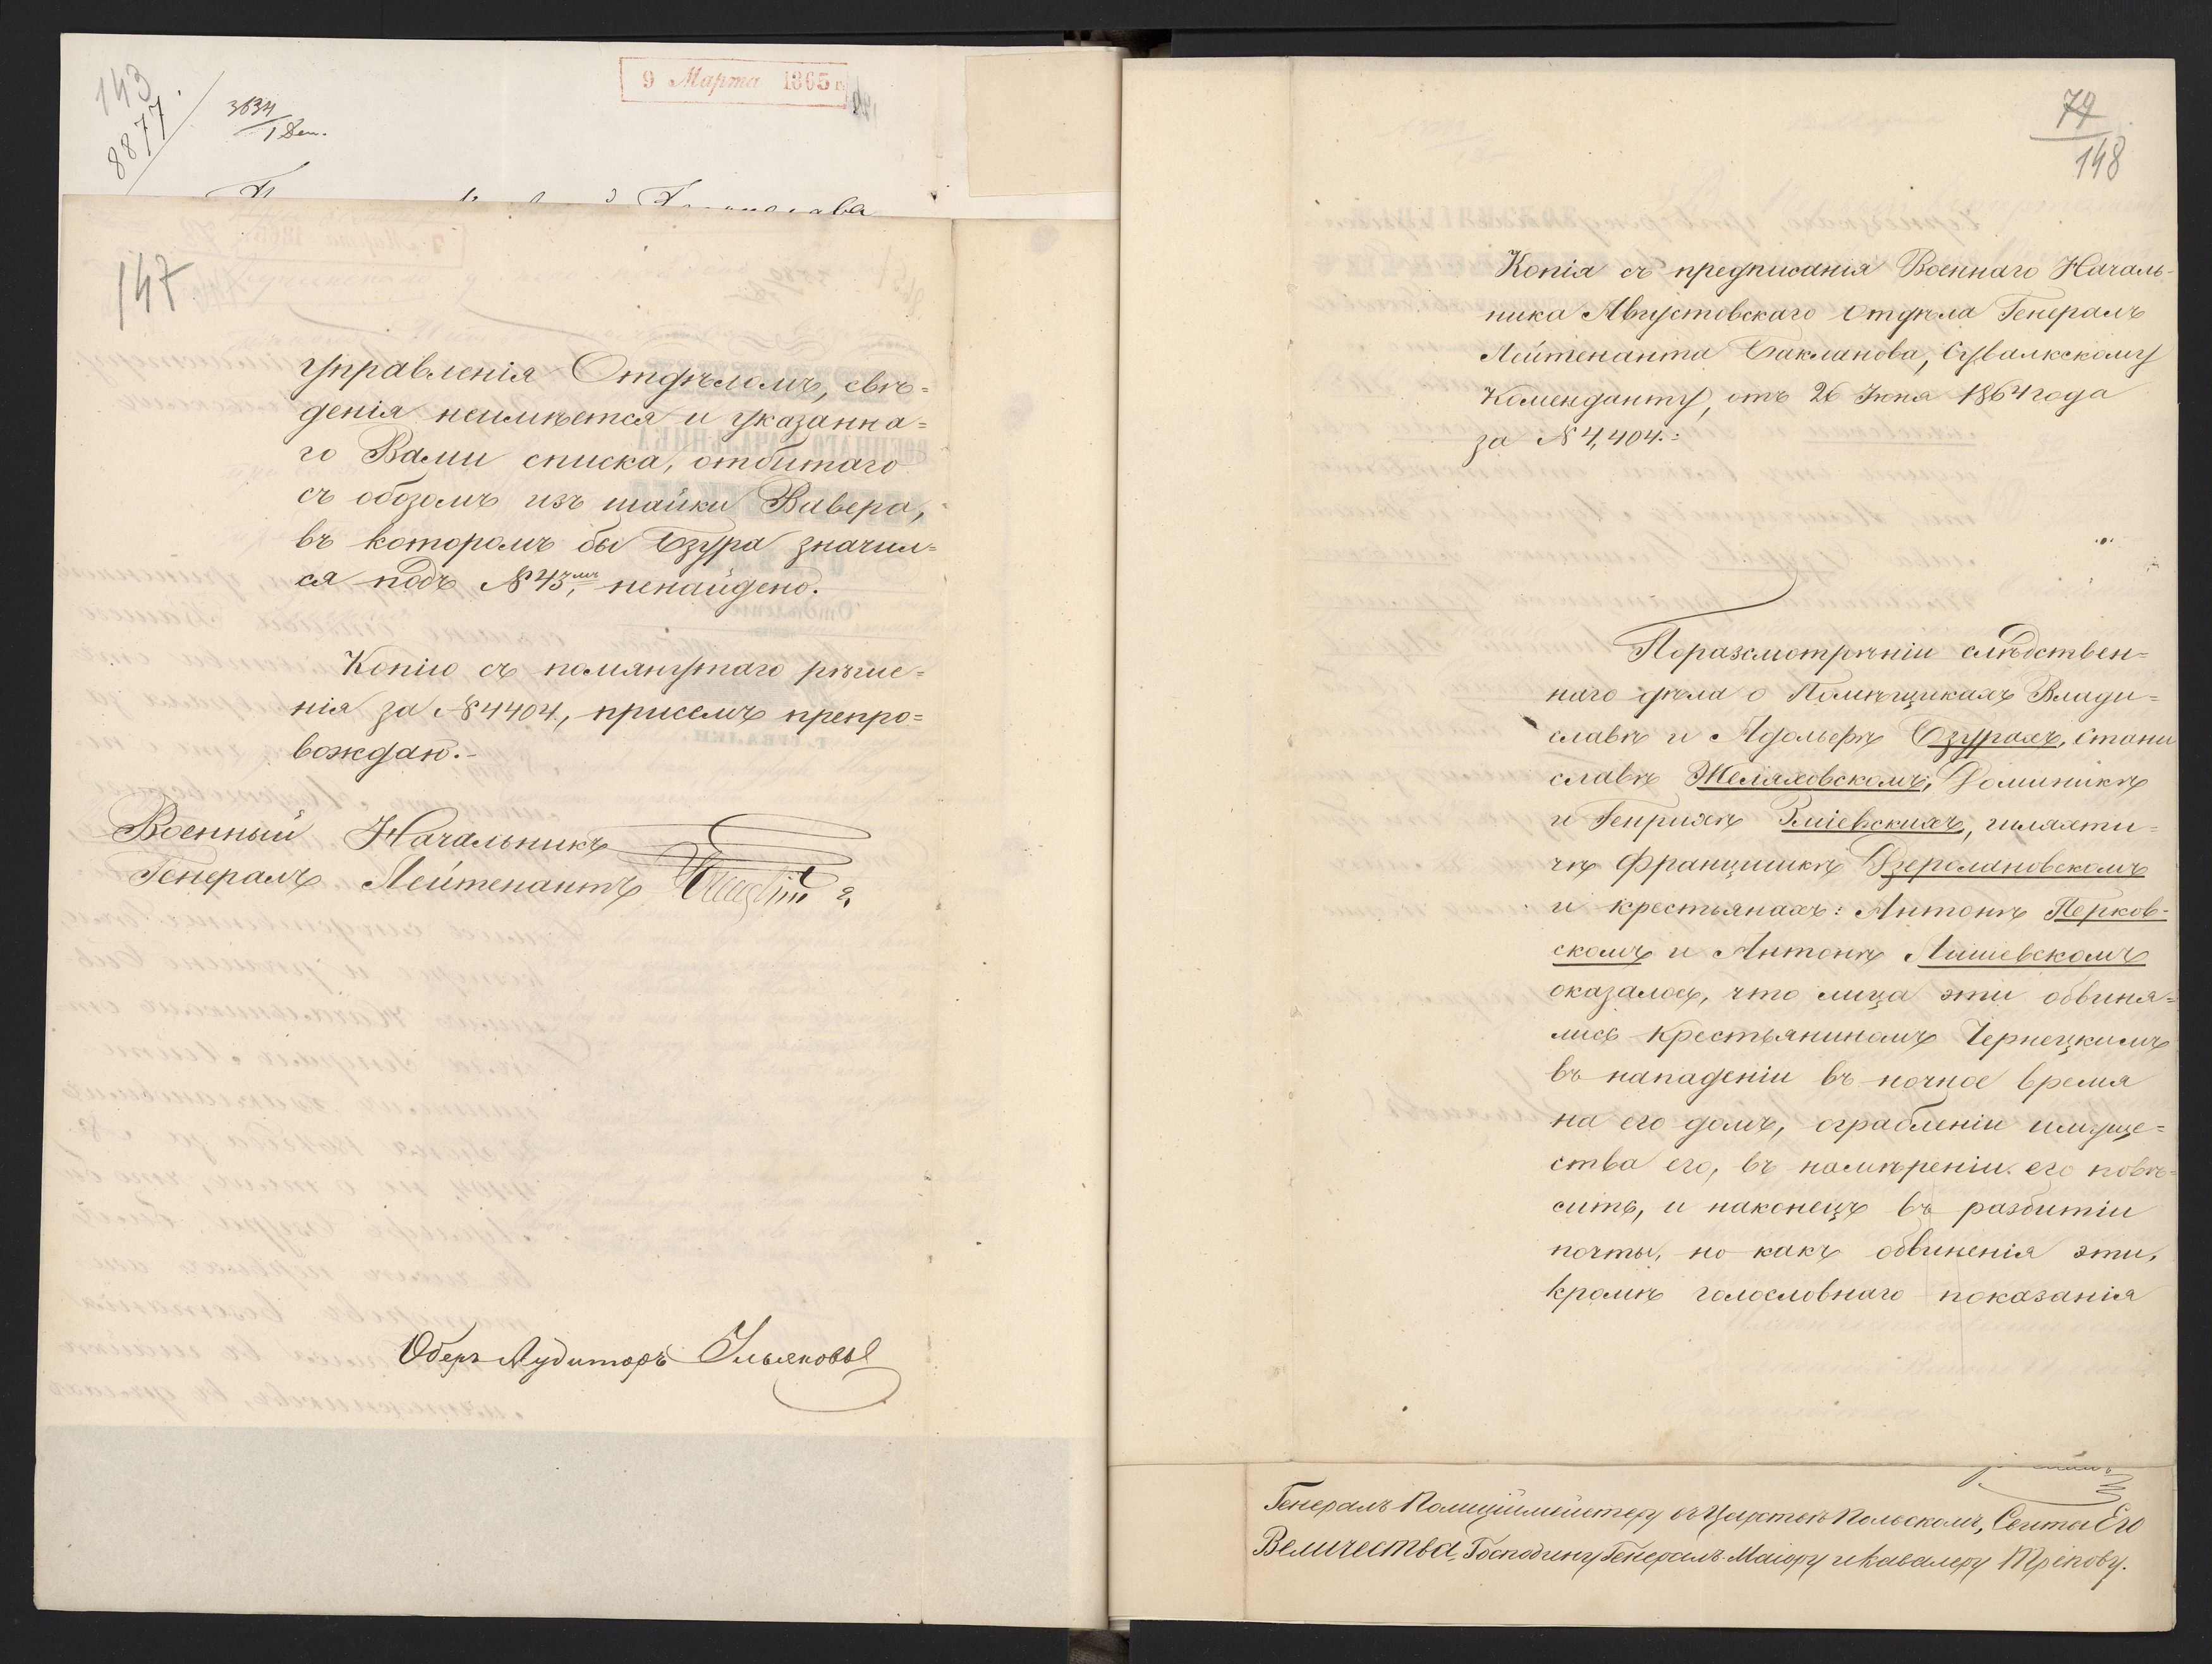 143
8877
3634
1 Ден.
9 Марта 1865 г.
147
управленія Отдѣломъ, свѣ=
денія неимѣется и указанна=
го Вами списка, отбитаго
съ обозомъ изъ шайки Вавера,
въ которомъ бы Бзура значил=
ся подъ № 43мъ, ненайдено.
Копію съ помянутаго рѣше=
нія за № 4404, присемъ препро=
вождаю.-
Военный Начальникъ
Генералъ Лейтенантъ
Оберъ Аудиторъ Ульяновъ
79
148
Копія съ предписанія Военнаго Началь-
ника Августовскаго Отдѣла Генералъ
Лейтенанта Бакланова, Сувалкскому
Коменданту, отъ 26 Іюня 1864 года
за № 4,404.:
Поразсмотрѣніи слѣдствен=
наго дѣла о Помѣщикахъ Влади=
славѣ и Адольфѣ Бзурахъ, Стани
славѣ Желяховскомъ, Доминикѣ
и Генрихѣ Зміевскихъ, шляхти=
чѣ Францишкѣ Дзеромановскомъ
и крестьянахъ: Антонѣ Перков=
скомъ и Антонѣ Лишевскомъ
оказалось, что лица эти обвиня=
лись крестьяниномъ Чернецкимъ
въ нападеніи въ ночное время
на его домъ, ограбленіи имуще=
ства его, въ намѣреніи его повѣ=
сить, и наконецъ въ разбитіи
почты, но какъ обвиненія эти,
кромѣ голословнаго показанія
Генералъ Полицiймейстеру въ Царствѣ Польскомъ, Свиты Его
Величества, Господину Генералъ-Маіору и Кавалеру Трепову.